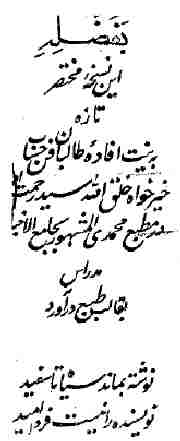 بفضلہ
این نسخهٔ مختصر
تازه
به نیت افادهٔ طالبان فن جناب
خیرخواه خلق الله سید رحمت
در مطبع محمدی المشهور بجامع الاخبار
مدراس
بقالب طبع درآورد
نوشته بماند سیه تا سفید
نویسنده را نیست فردا امید